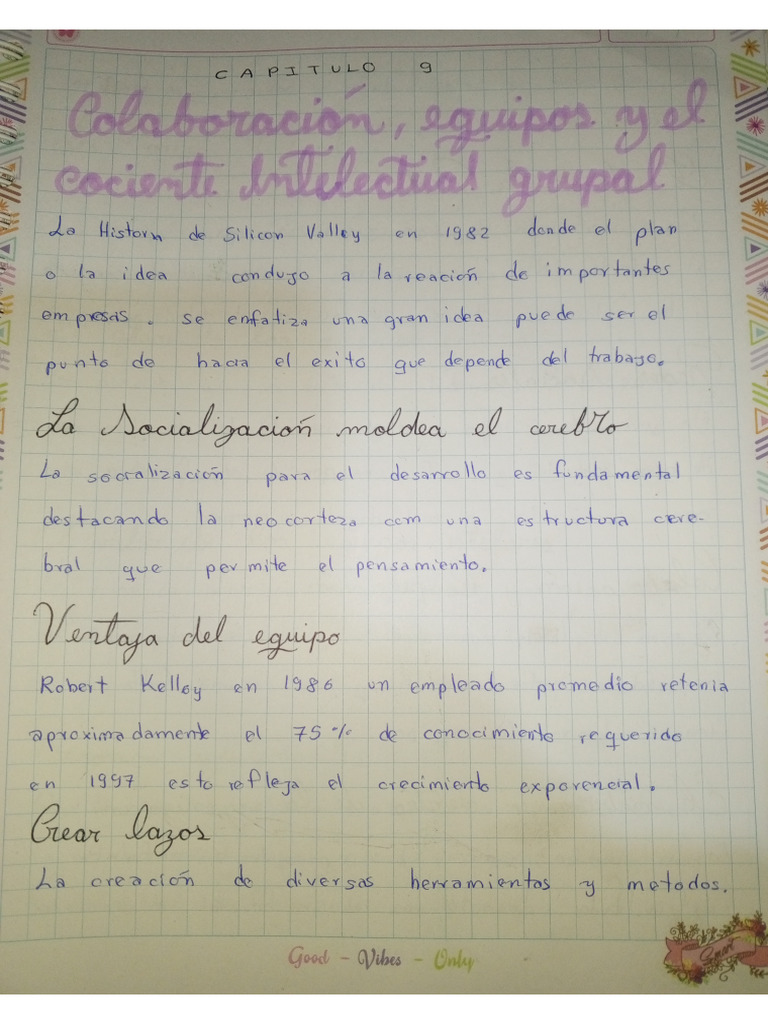 CAPITULO 9
Colaboración, equipos y el
cociente Intelectual grupal
La Historia de Silicon Valley en 1982 donde el plan
o la idea condujo a la reación de importantes
empresas. se enfatiza una gran idea puede ser el
punto de hacia el exito que depende del trabajo.
La Socialización moldea el cerebro
La socialización para el desarrollo es fundamental
destacando la neocorteza com una estructura cere-
bral que permite el pensamiento.
Ventaja del equipo
Robert Kelley en 1986 un empleado promedio retenia
aproximadamente el 75% de conocimiento requerido
en 1997 esto refleja el crecimiento exporencial.
Crear lazos
La creación de diversas herramientos y metodos.
Good - Vibes - Only